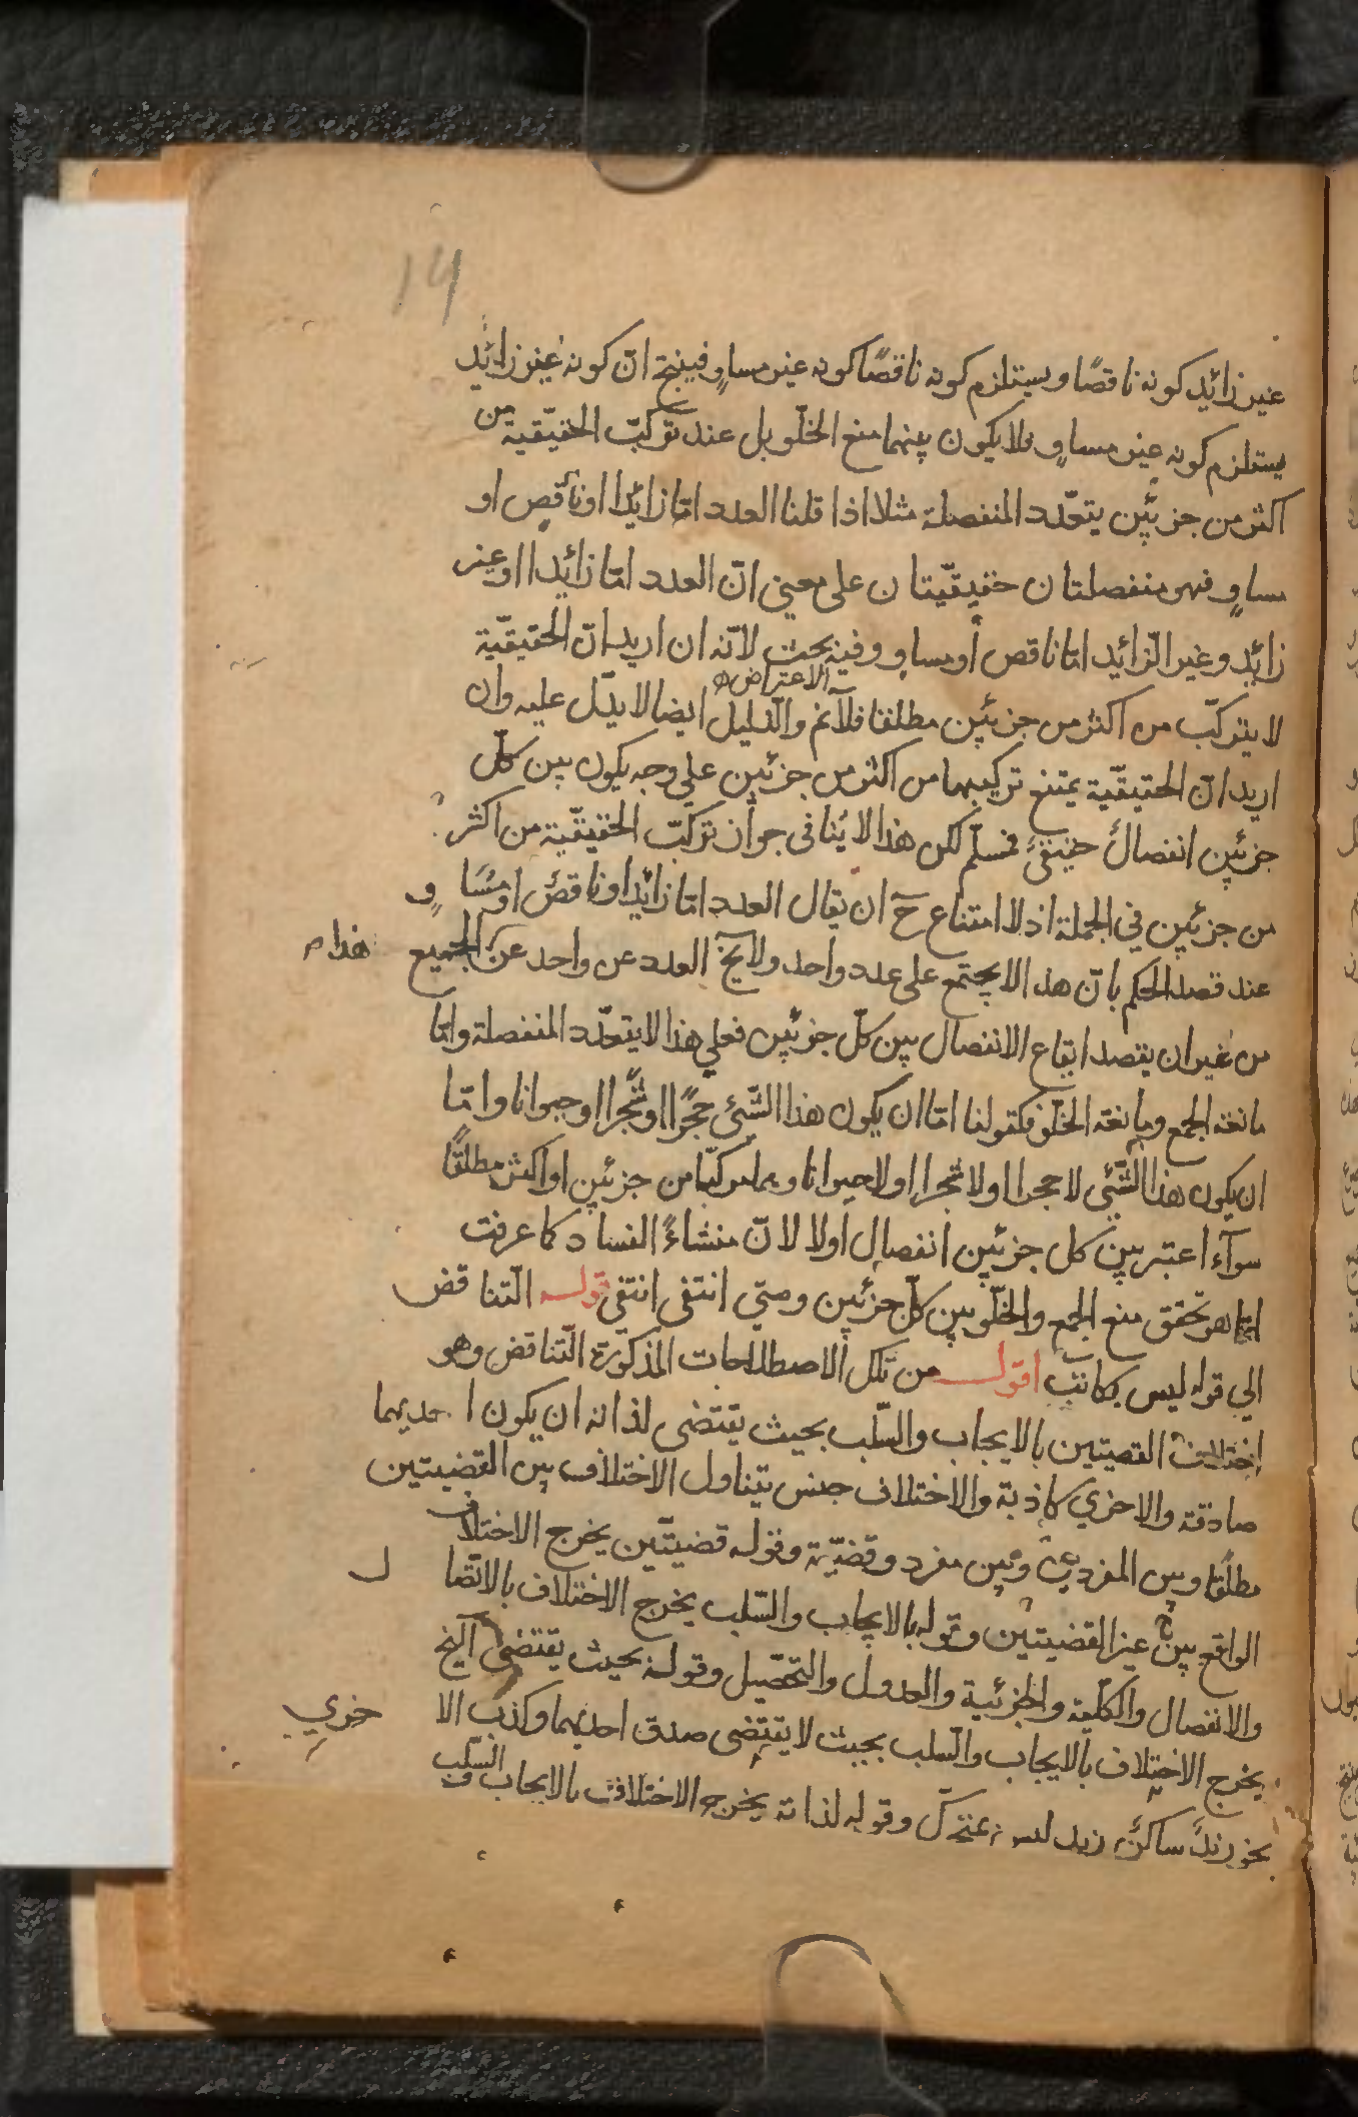 14
غير زائد كونه ناقصًا ويستلزم كونه ناقصًا كونه غير مساوٍ فينتج انّ كونه غير زائد
يستلزم كونه غير مساوٍ فلا يكون بينهما منع الخلّو بل عند تركّب الحقيقيّة من
اكثر من جزئين يتعدّد المنفصلة مثلا اذا قلنا العدد امّا زائدا او ناقص او
مساوٍ فهى منفصلتان حقيقيّتان على معنى انّ العدد امّا زائدا او غير
زائد وغير الزّائد امّا ناقص أو مساوٍ وفيه بحث لانّه ان اريد انّ الحقيقيّة
الاعتراض
لا يتركّب من اكثر من جزئين مطلقا فلآنم والدّليل ايضا لا يدّل عليه وان
اريد انّ الحقيقيّة يمتنع تركيبها من اكثر من جزئين على وجه يكون بين كلّ
جزئين انفصالٌ حقيقىٌ فمسلّم لكن هذا لا يُنافى جواز تركّب الحقيقيّة من اكثر
من جزئين في الجملة اذ لا امتناع حَ ان يقال العدد امّا زائدا وناقصٌ او مسَاوٍ
عند قصد الحكم بانّ هذا لا يجتمع على عدد واحد ولا يخ العدد عن واحد عن الجميع هذا م
من غير ان يقصد ايقاع الانفصال بين كلّ جزئين فعلى هذا لا يتعدّد المنفصلة وامّا
مانعة الجمع ومانعة الخلّو فكقولنا امّا ان يكون هذا الشّئ حجرًا او شجرًا او حيوانا وامّا
ان يكون هذا الشّئ لا حجرا او لا شجرا او لا حيوانا وهما مركبّا من جزئين او اكثر مطلقًا
سوآء اعتبر بين كل جزئين انفصال اولا لانّ منشاءَ الفساد كما عرفت
انما هو تحقق منع الجمع والخلّو بين كلّ جزئين ومتى انتفى انتفى قوله التّناقض
الي قوله ليس بكاتب اقول من تلك الاصطلاحات المذكورة التّناقض وهو
اختلاف القضيتين بالايجاب والسّلب بحيث يقتضى لذاته ان يكون احديهما
صادقة والاخري كاذبة والاختلاف جنس يتناول الاختلاف بين القضيتين
مطلقًا وبين المفردين وبين مفرد وقضيّة وقوله قضيتّين يخرج الاختلاف
الواقع بين غير القضيتين وقوله بالايجاب والسّلب يخرج الاختلاف بالاتّصال
والانفصال والكلّية والجزئية والعدول والتحصّيل وقوله بحيث يقتضى آلخ
يخرج الاختلاف بالايجاب والسّلب بحيث لا يقتضى صدق احديهما وكذب الاخري
نحو زيدٌ ساكنٌ زيد ليس بمتحرّك وقوله لذاته يخرج الاختلاف بالايجاب والسّلب